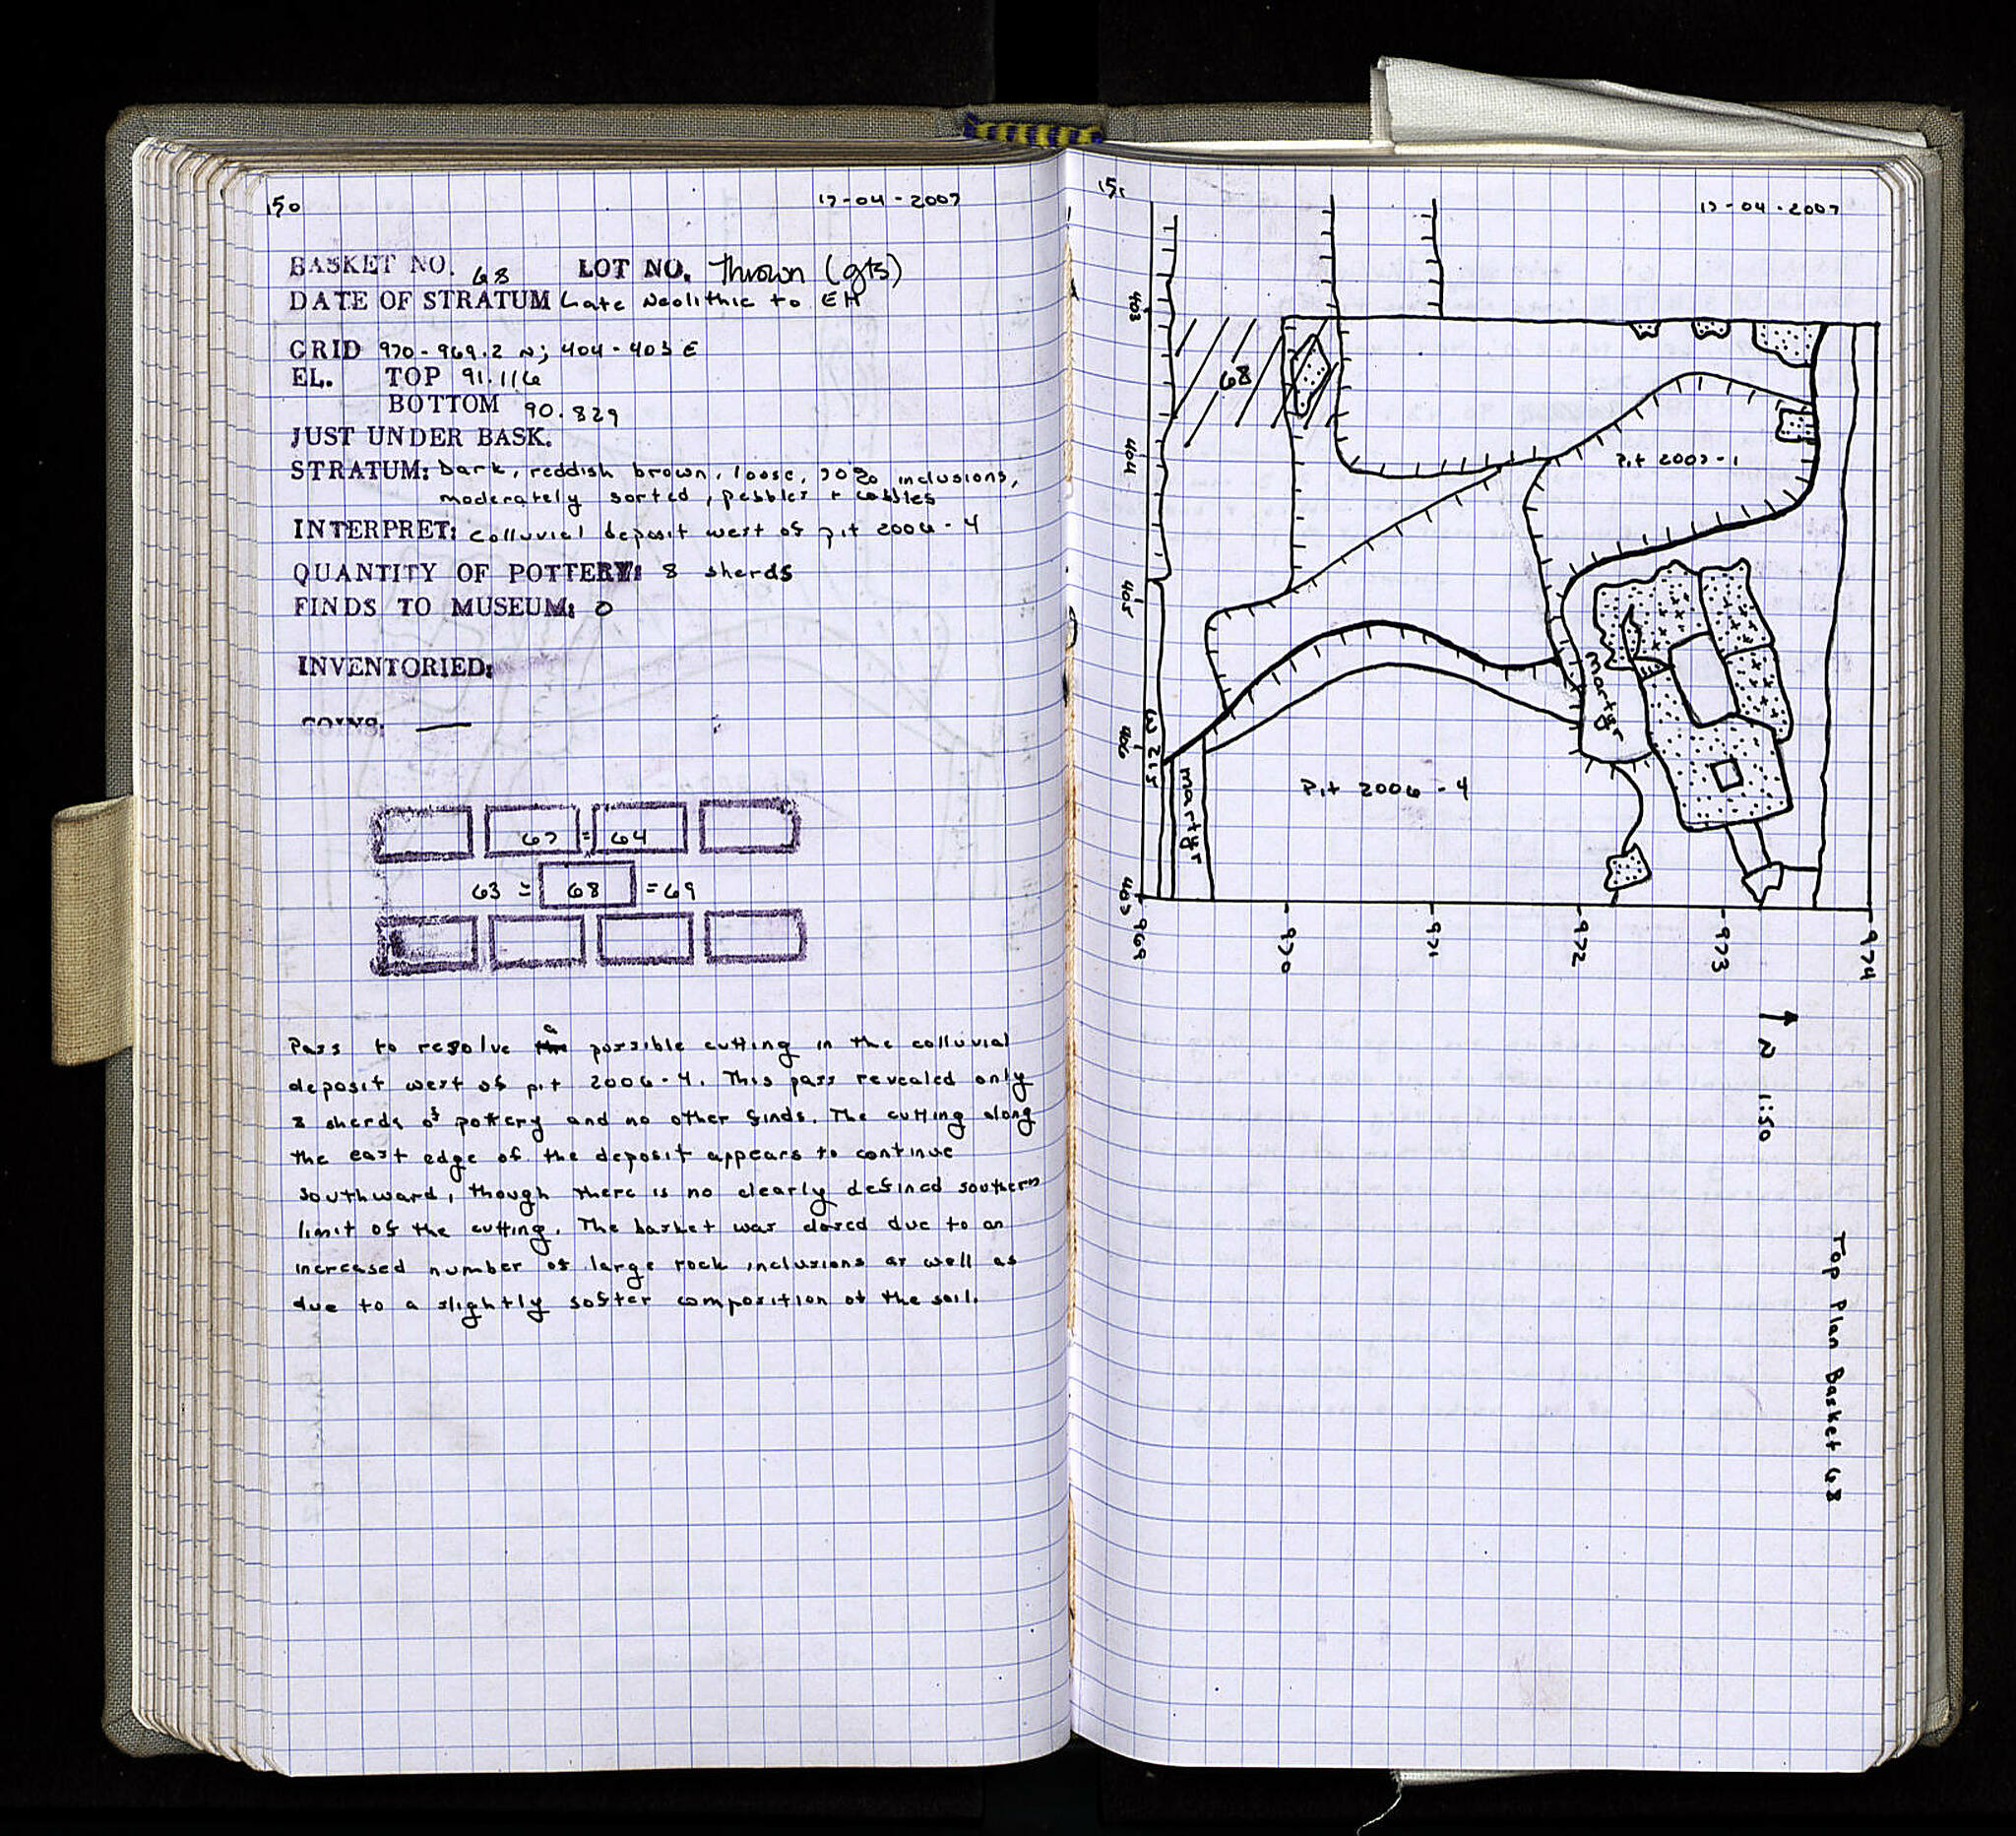 150
17-04-2007
BASKET NO. 68 LOT NO. Thrown (gts)
DATE OF STRATUM Late Neolithic to EH
GRID 970-969.2 N; 404-403 E
EL. TOP 91.116
BOTTOM 90.829
JUST UNDER BASK.
STRATUM: Dark, reddish brown, loose, 70% inclusions,
moderately sorted, pebbles + cobbles
INTERPRET: Colluvial deposit west of pit 2006-4
QUANTITY OF POTTERY: 8 sherds
FINDS TO MUSEUM: 0
INVENTORIED:
COINS: —
67 = 64
63 = 68 = 69
Pass to resolve a possible cutting in the colluvial
deposit west of pit 2006-4. This pass revealed only
8 sherds of pottery and no other finds. The cutting along
the east edge of the deposit appears to continue
southward, though there is no clearly defined southern
limit of the cutting. The basket was closed due to an
increased number of large rock inclusions as well as
due to a slightly softer composition of the soil.
151
17-04-2007
403
404
405
406
407
68
Pit 2007-1
martyr
W 215
martyr
Pit 2006-4
969
970
971
972
973
974
N 1:50
Top Plan Basket 68